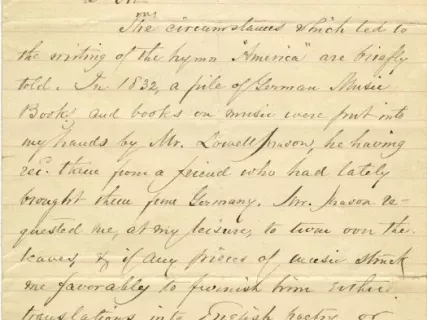 The circumstances which led to
the writing of the hymn "America" are briefly
told. In 1832, a pile of German Music
Books, and books on music were put into
my hands by Mr. Lowell Mason, he having
rec. them from a friend who had lately
brought them from Germany. Mr. Mason re-
quested me, at my leisure, to turn over the
leaves, & if any pieces of music struck
me favorably to furnish him either
translations into English poetry or